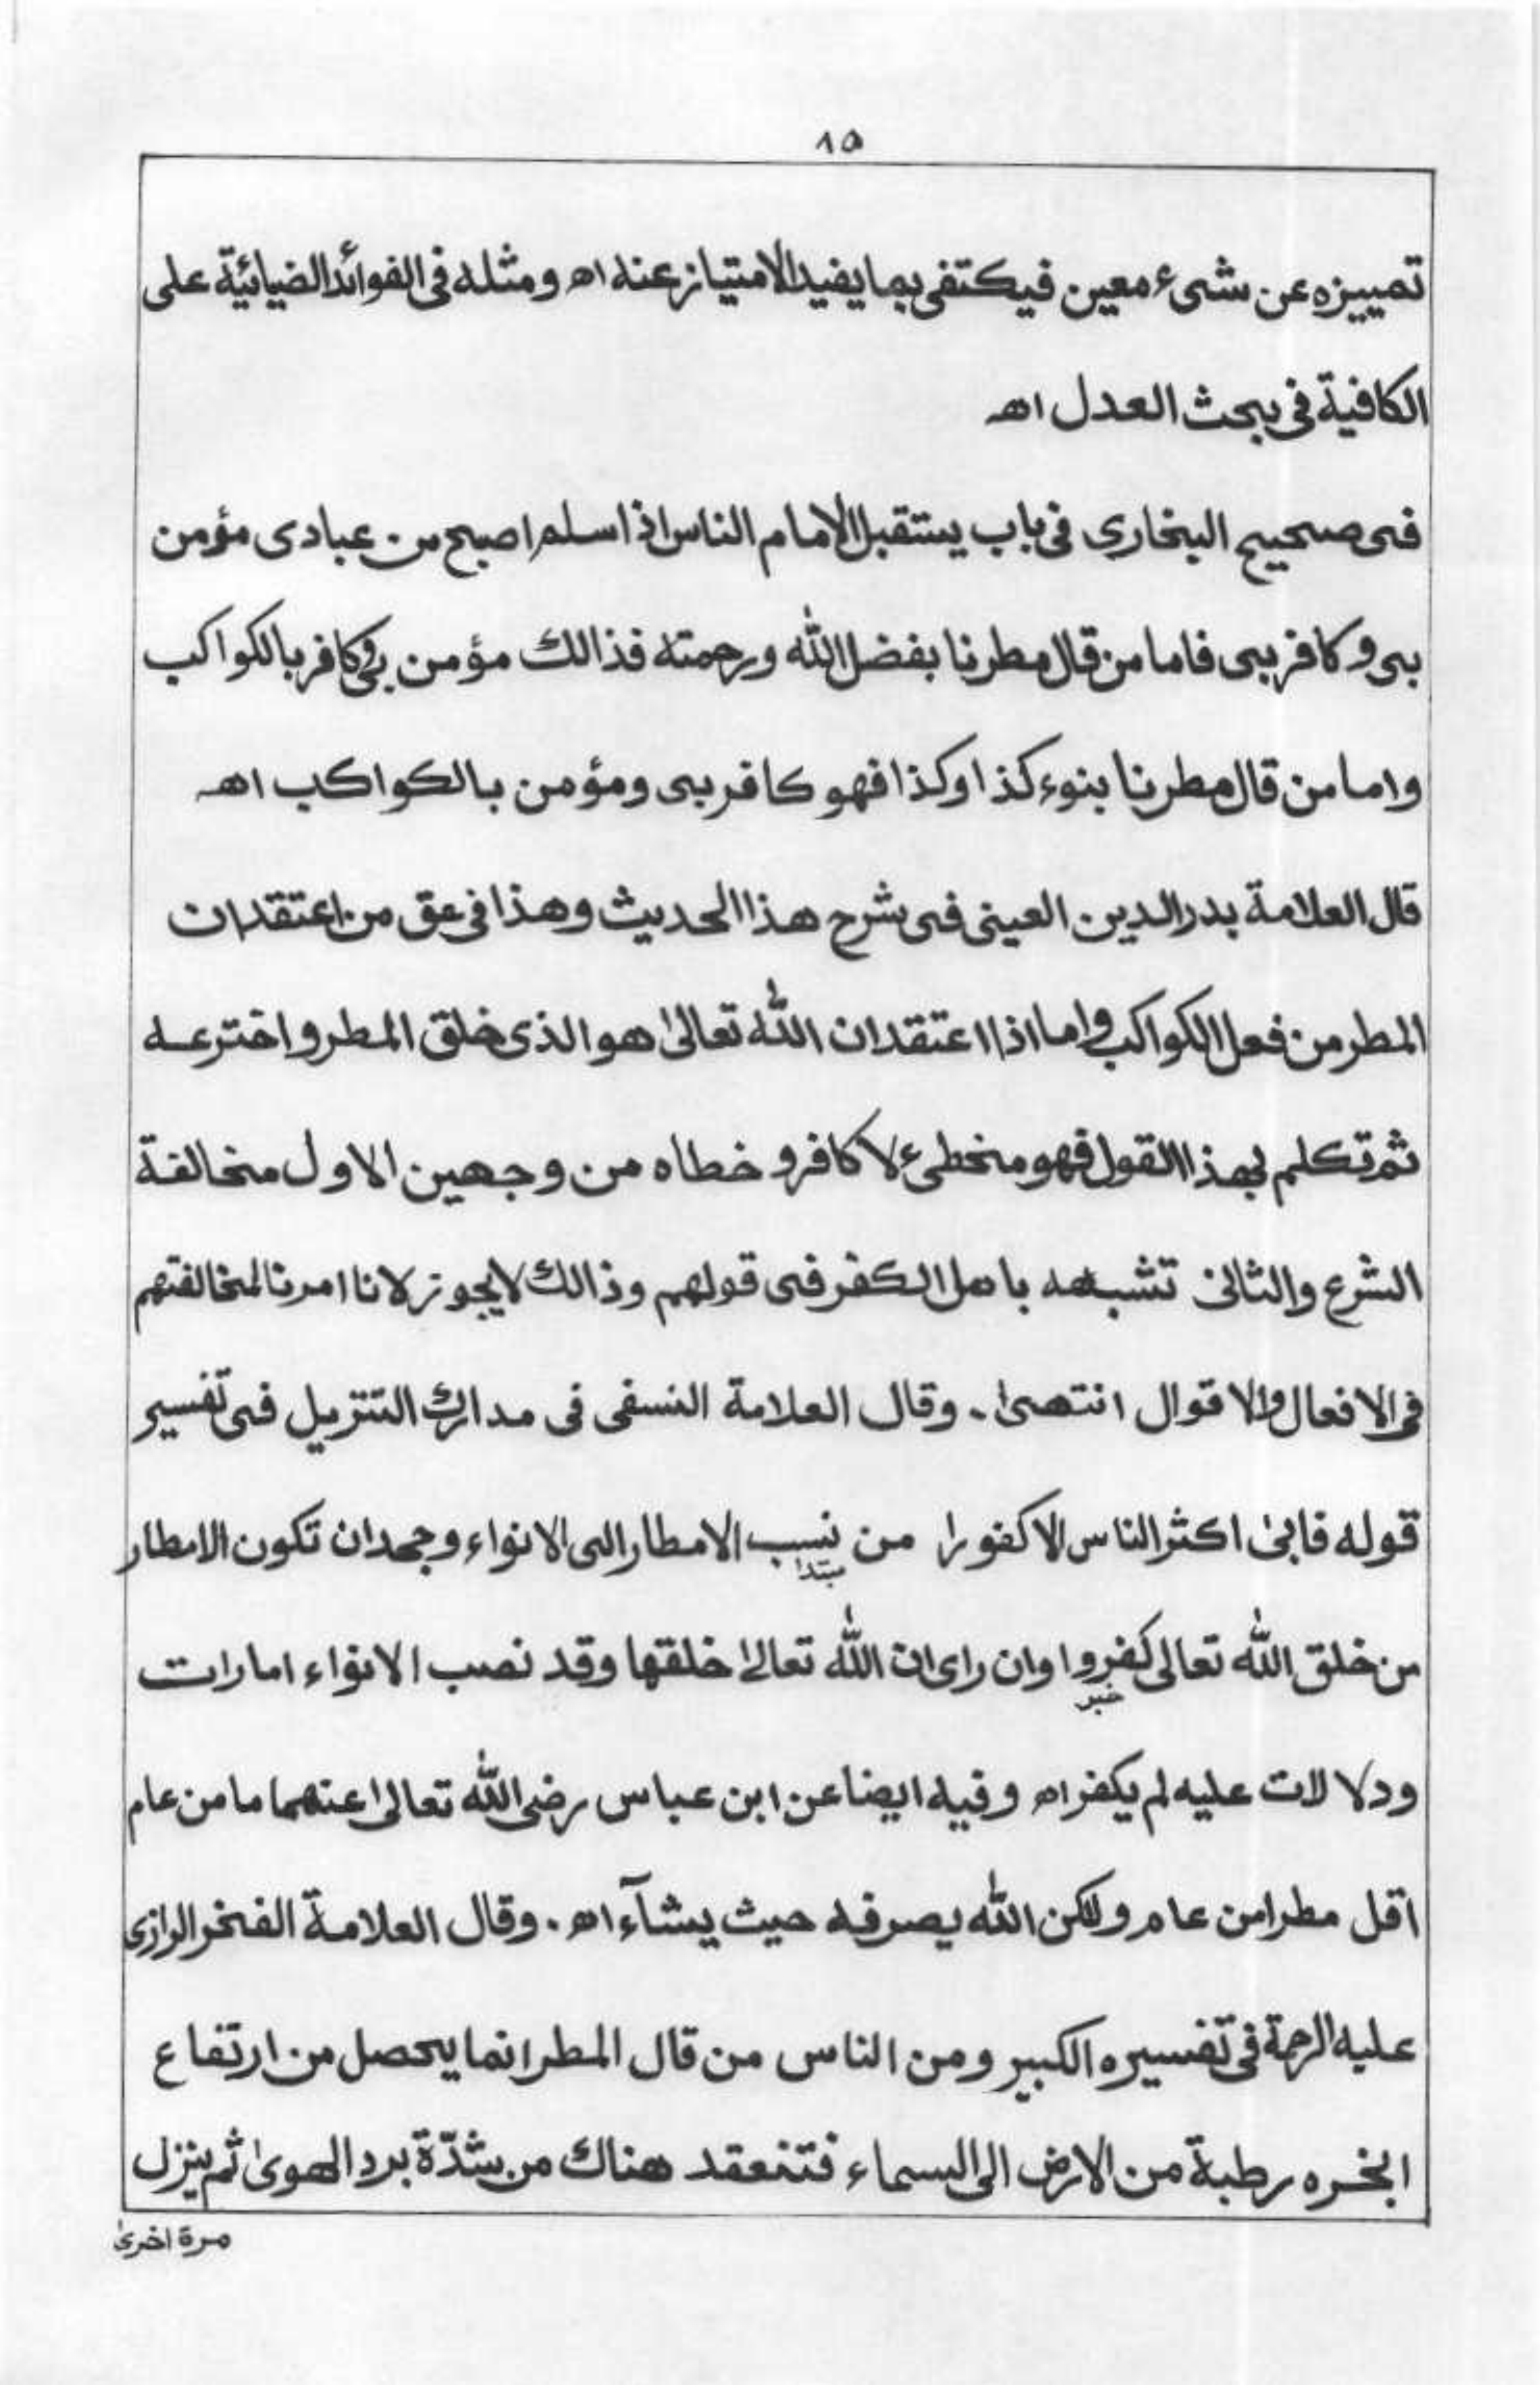 ٨٥
تمييزه عن شىء معين فيكتفى بما يفيد الامتياز عنه اه ومثله فى الفوائد الضيائية على
الكافية فى بحث العدل اهـ
فى صحيح البخارى فى باب يستقبل الامام الناس اذا سلم اصبح من عبادى مؤمن
بى وكافر بى فاما من قال مطرنا بفضل الله ورحمته فذالك مؤمن بى وكافر بالكواكب
واما من قال مطرنا بنوء كذا وكذا فهو كافر بى ومؤمن بالكواكب اهـ
قال العلامة بدرالدين العينى فى شرح هذا الحديث وهذا فى حق من اعتقد ان
المطر من فعل الكواكب واما اذا اعتقد ان الله تعالىٰ هو الذى خلق المطر واخترعه
ثم تكلم بهذا القول فهو مخطىء لا كافر و خطاه من وجهين الاول مخالفة
الشرع والثانى تشبهه باهل الكفر فى قولهم وذالك لايجوز لانا امرنا لمخالفتهم
فى الافعال والاقوال انتهىٰ. وقال العلامة النسفى فى مدارك التنزيل فى تفسير
قوله فابىٰ اكثر الناس الا كفورا من نسب الامطار الى الانواء وجحد ان تكون الامطار
مبتدا
من خلق الله تعالى كفر وا وان راى ان الله تعالىٰ خلقها وقد نصب الانواء امارات
خبر
ودلالات عليه لم يكفر اه وفيه ايضا عن ابن عباس رضى الله تعالىٰ عنهما ما من عام
اقل مطرا من عام ولكن الله يصرفه حيث يشآء اه. وقال العلامة الفخر الرازى
عليه الرحمة فى تفسيره الكبير ومن الناس من قال المطر انما يحصل من ارتفاع
ابخره رطبة من الارض الى السماء فتنعقد هناك من شدّة برد الهوىٰ ثم ينزل
مرة اخرىٰ